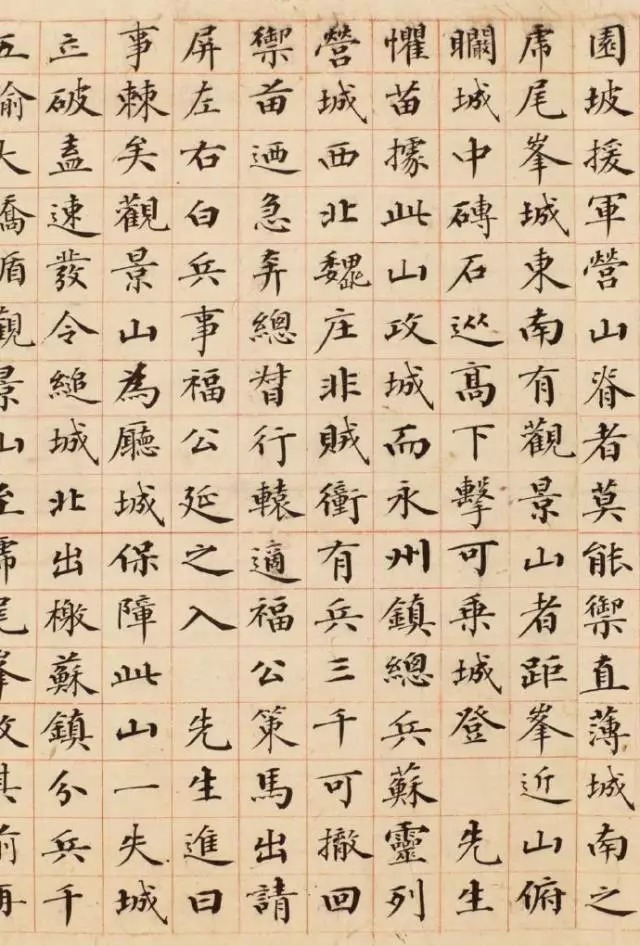 園坡援軍營山脊者莫能禦直薄城南之
虎尾峯城東南有觀景山者距峯近山俯
城中磚石從高下擊可乗城登 先生
懼苗據此山攻城而永州鎮總兵蘇靈列
營城西北魏庄非賊衝有兵三千可撤回
禦苗迺急奔總督行轅適福公策馬出請
屏左右白兵事福公延之入 先生進曰
事棘矣觀景山為廳城保障此山一失城
立破盍速發令縋城北出檄蘇鎮分兵千
五大觀景山至虎尾峯攻其前再